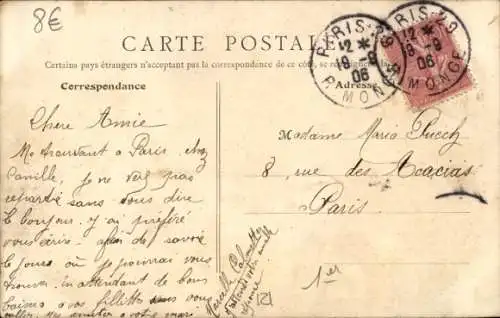 8€
CARTE POSTALE
Certains pays étrangers n'acceptant pas la correspondance de ce côté, se renseigner
Correspondance
Adresse
PARIS-29
12 *
18-9
06
R. MONGE
PARIS-29
12 *
18-9
06
R. MONGE
Chere Amie
Me trouvant a Paris chez
Camille, je ne veux pas
repartir sans vous dire
le bonjour. J'y ai préféré
vous écrire afin de savoir
le jour où je pourrai vous
trouver. En attendant de bons
baisers a vos fillettes vous
a votre mari
Marcelle
réponse
Madame Maria
8, rue des Acacias
Paris
1er
121